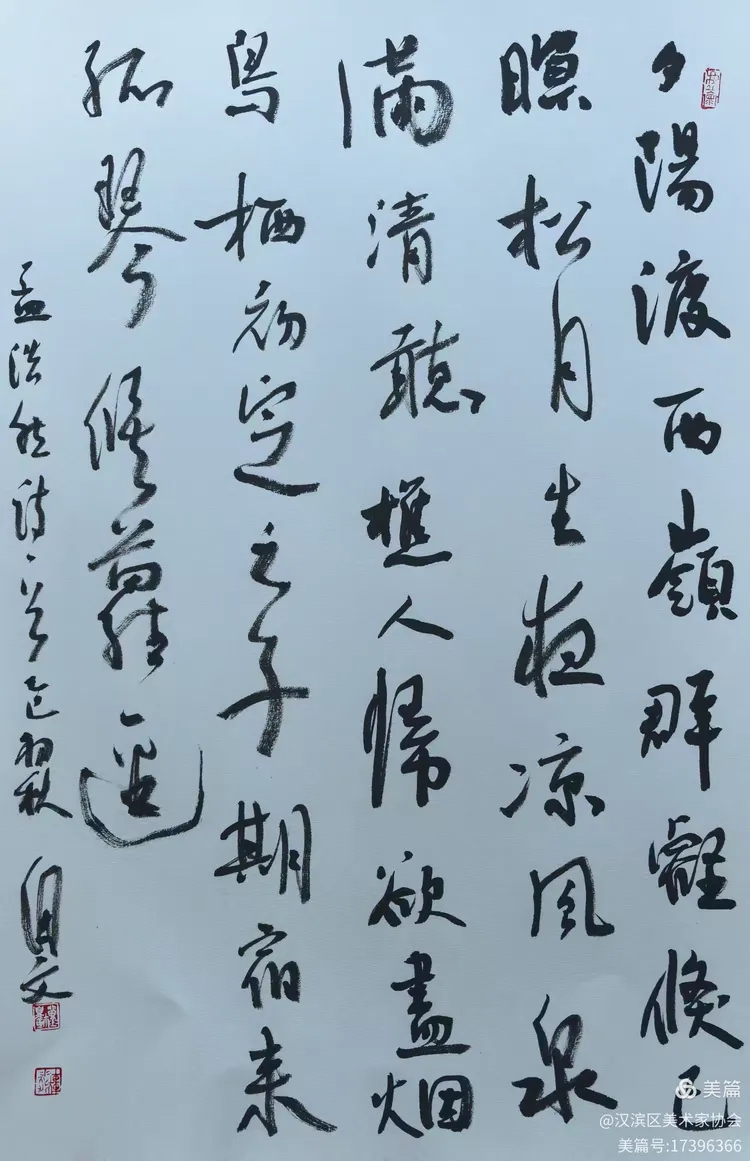 夕陽渡西嶺群壑倏已
瞑松月生夜凉風泉
滿清聽樵人歸欲盡烟
鳥栖初定之子期宿来
孤琴候蘿逕
孟浩然詩一首 秋 文
美篇
@汉滨区美术家协会
美篇号:17396366